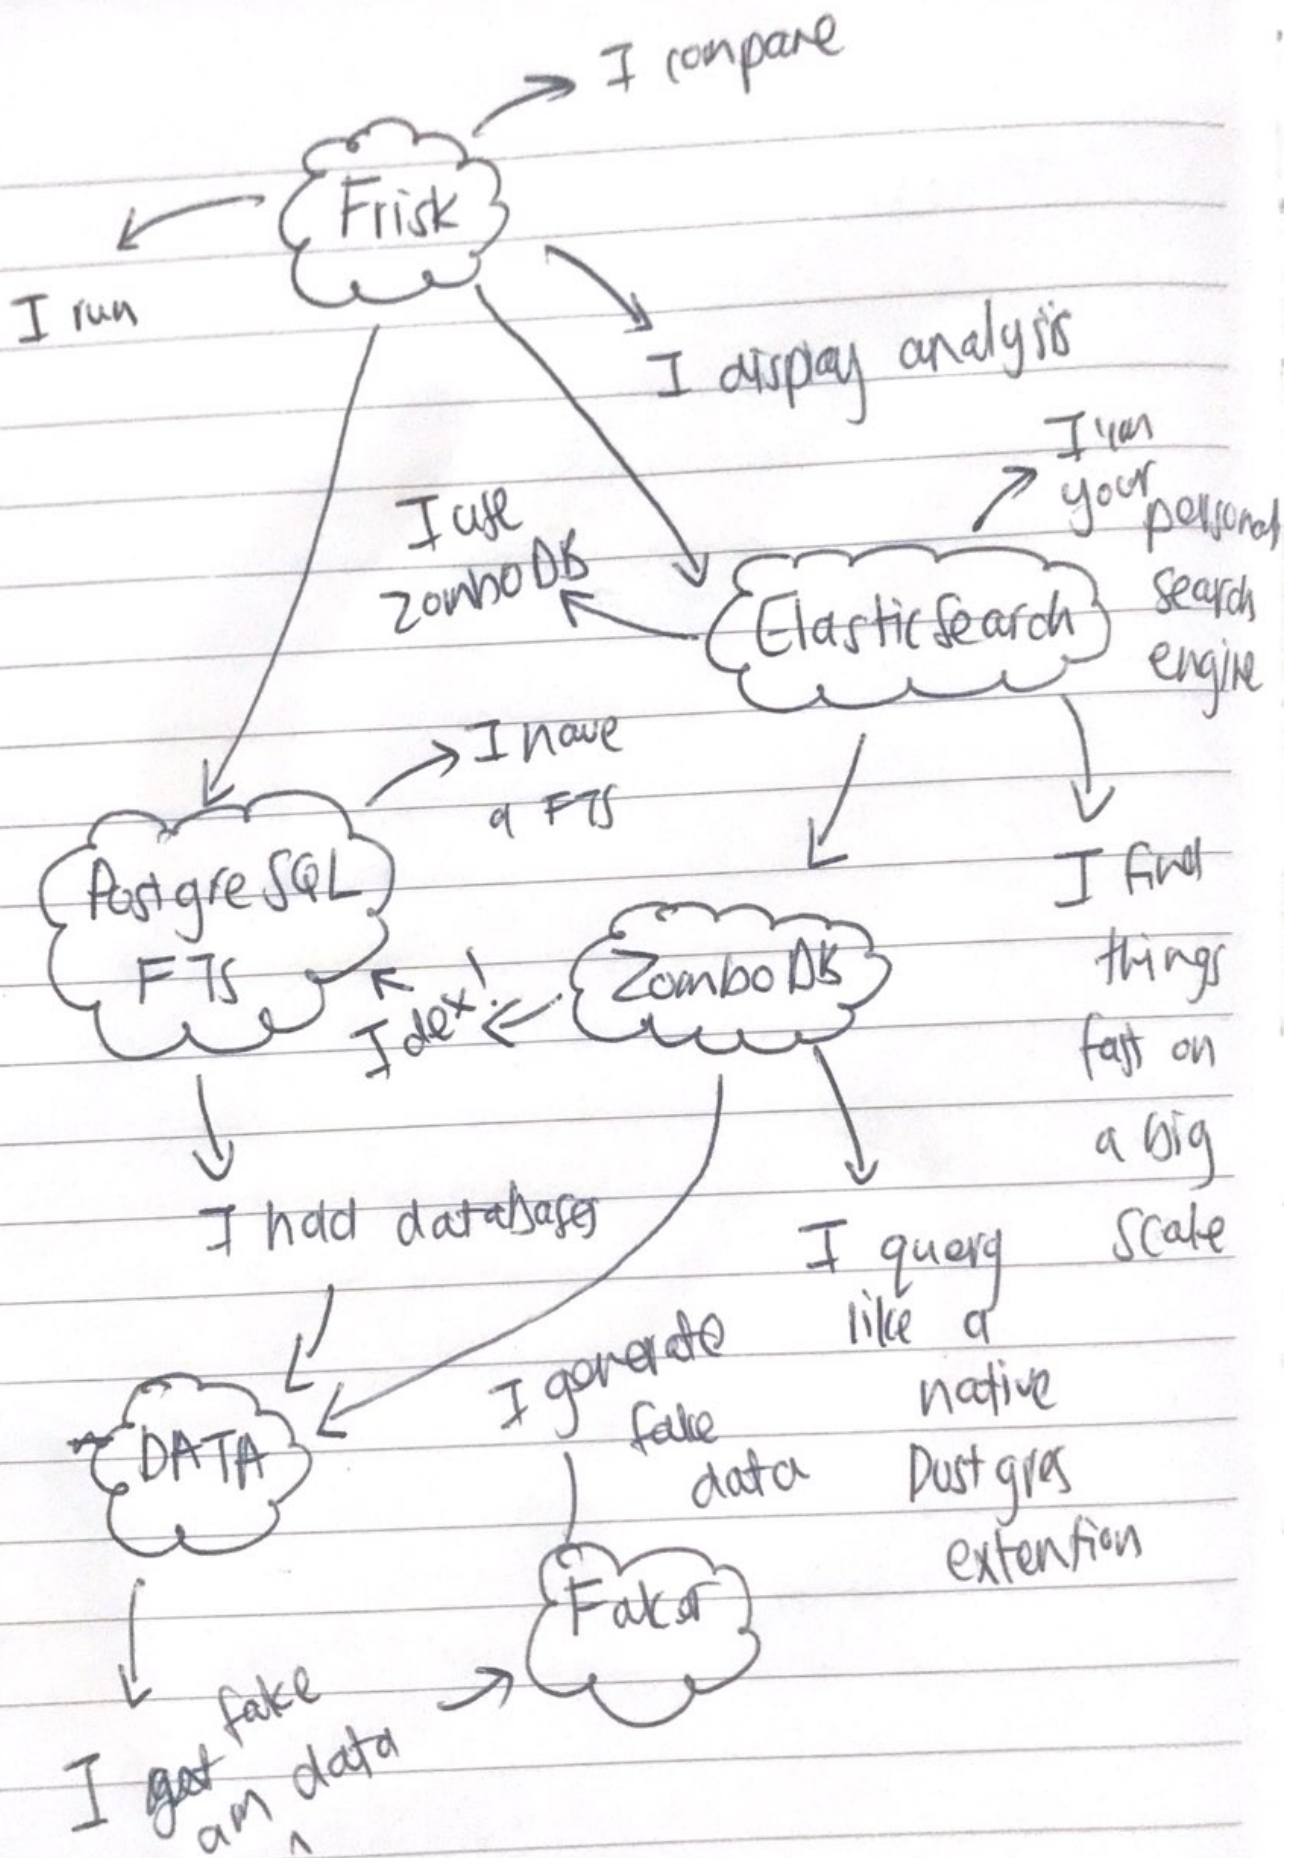 I compare
Frisk
I run
I display analysis
I run
your
personal
search
engine
I use
ZomboDB
ElasticSearch
I have
a FTS
PostgreSQL
FTS
I find
things
fast on
a big
scale
ZomboDB
I dex!
I hold databases
I query
like a
native
Postgres
extention
I generate
fake
data
DATA
Faker
fake
I get data
am